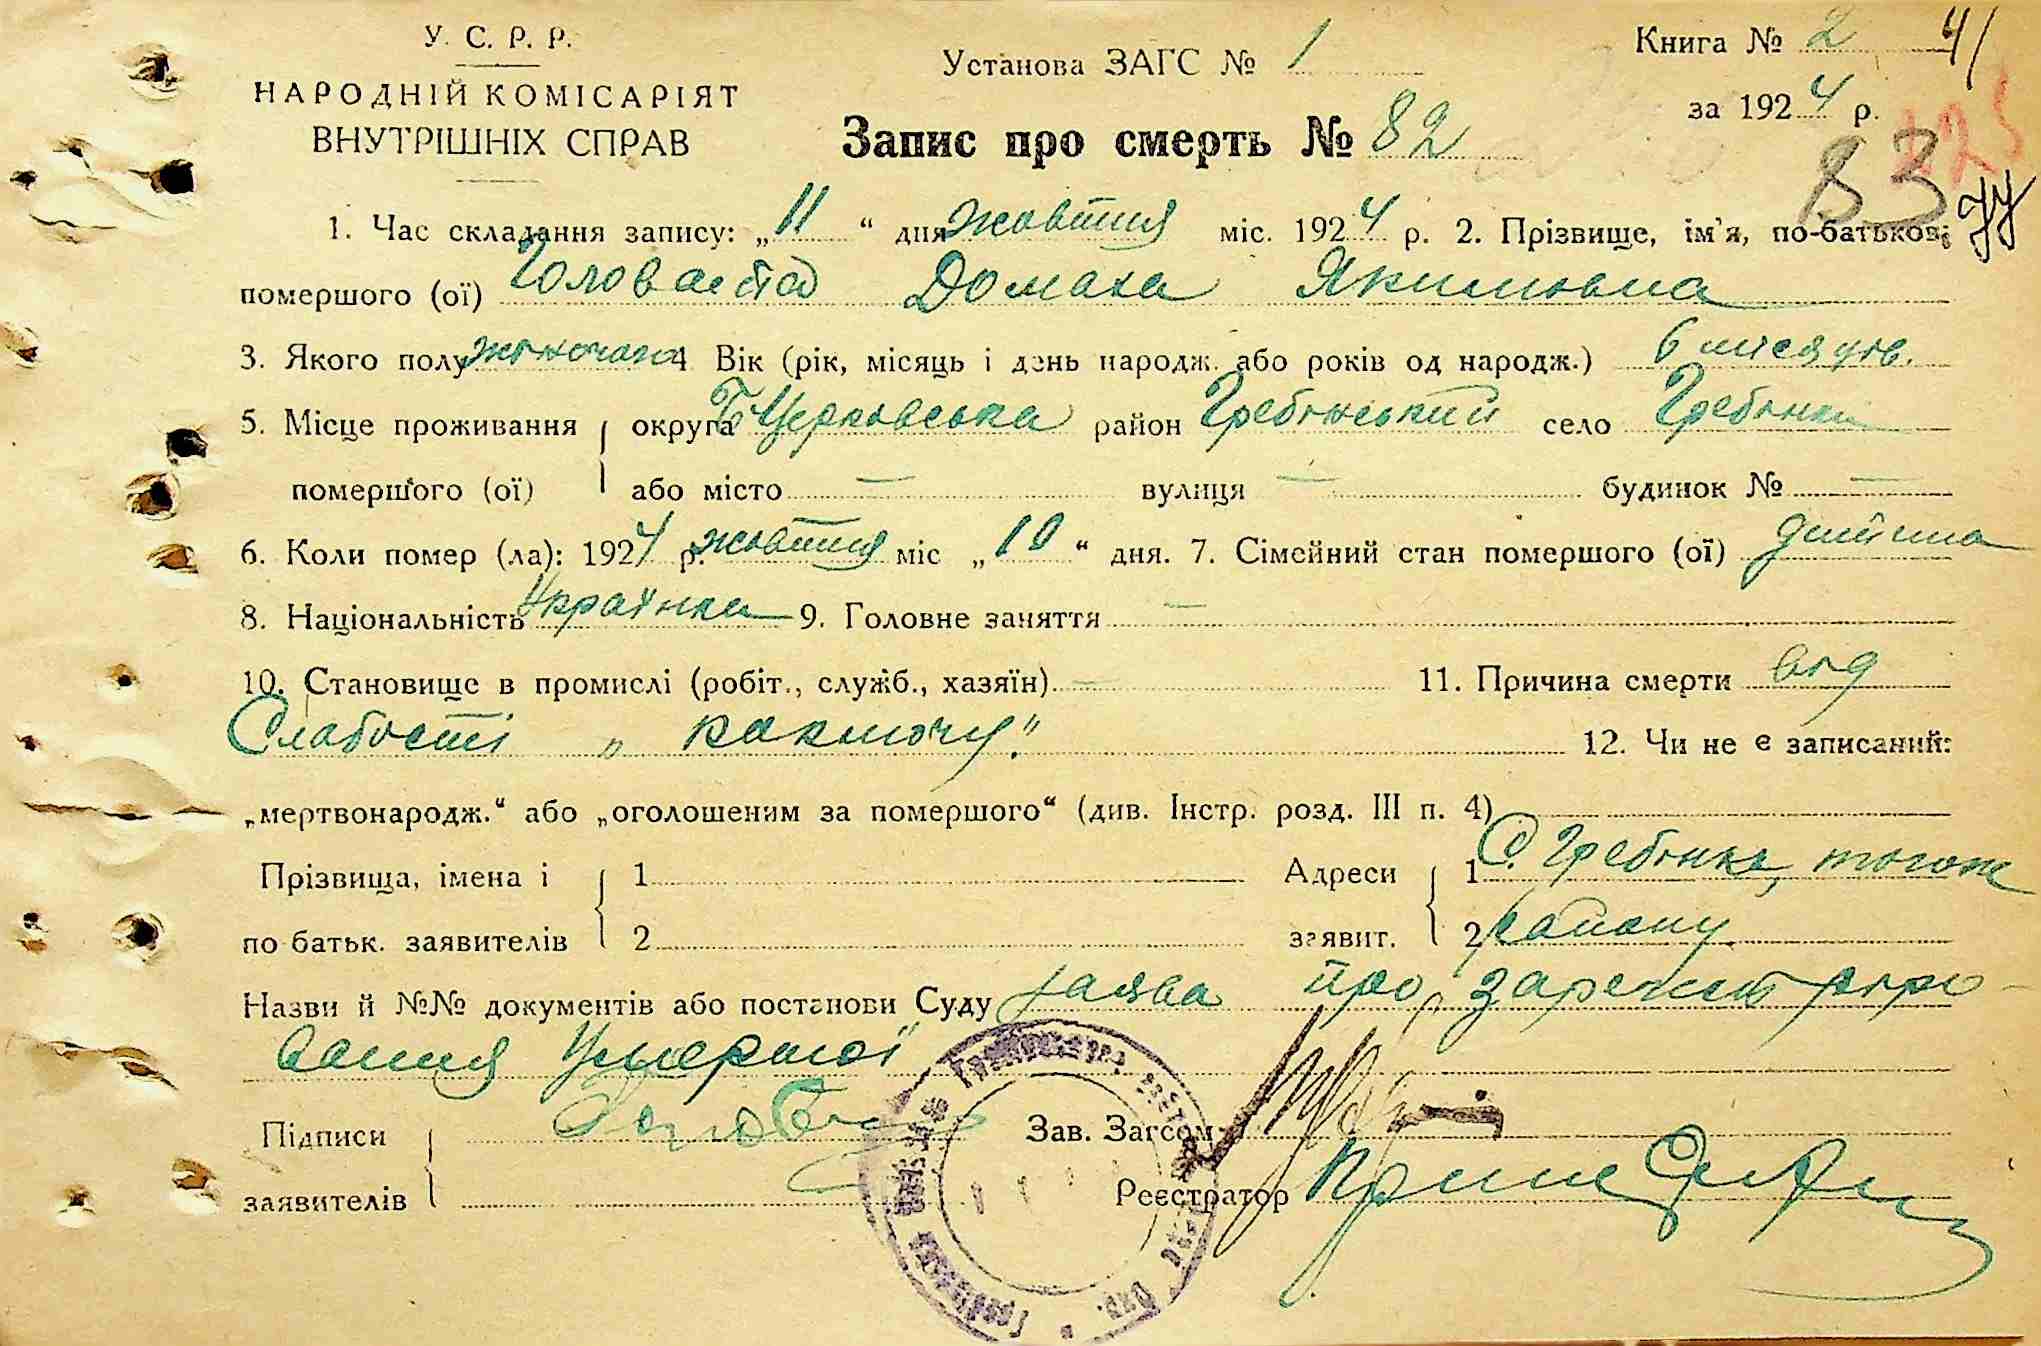 У. С. Р. Р.
НАРОДНІЙ КОМІСАРІЯТ
ВНУТРІШНІХ СПРАВ
Установа ЗАГС № 1
Книга № 2 41
за 1924 р.
125
Запис про смерть № 82
83
77
1. Час складання запису: „11“ дня жовтня міс. 1924 р. 2. Прізвище, ім'я, по-батькові
помершого (ої) Головата Домаха Якимовна
3. Якого полу жіночого 4 Вік (рік, місяць і день народж. або років од народж.) 6 місяців.
5. Місце проживання округа Б Церковська район Гребінський село Гребінки
помершого (ої) або місто — вулиця — будинок № —
6. Коли помер (ла): 1924 р. жовтня міс „10“ дня. 7. Сімейний стан помершого (ої) дитина
8. Національність Українка 9. Головне заняття —
10. Становище в промислі (робіт., служб., хазяїн) — 11. Причина смерти від
Слабості „коключу“. 12. Чи не є записаний:
„мертвонародж.“ або „оголошеним за помершого“ (див. Інстр. розд. III п. 4)
Прізвища, імена і 1 Адреси 1 С. Гребінка, тогож
по батьк. заявителів 2 заявит. 2 району
Назви й №№ документів або постанови Суду заява про зарегистріро-
вання Умершої
Підписи Зав. Загсом
заявителів Реєстратор